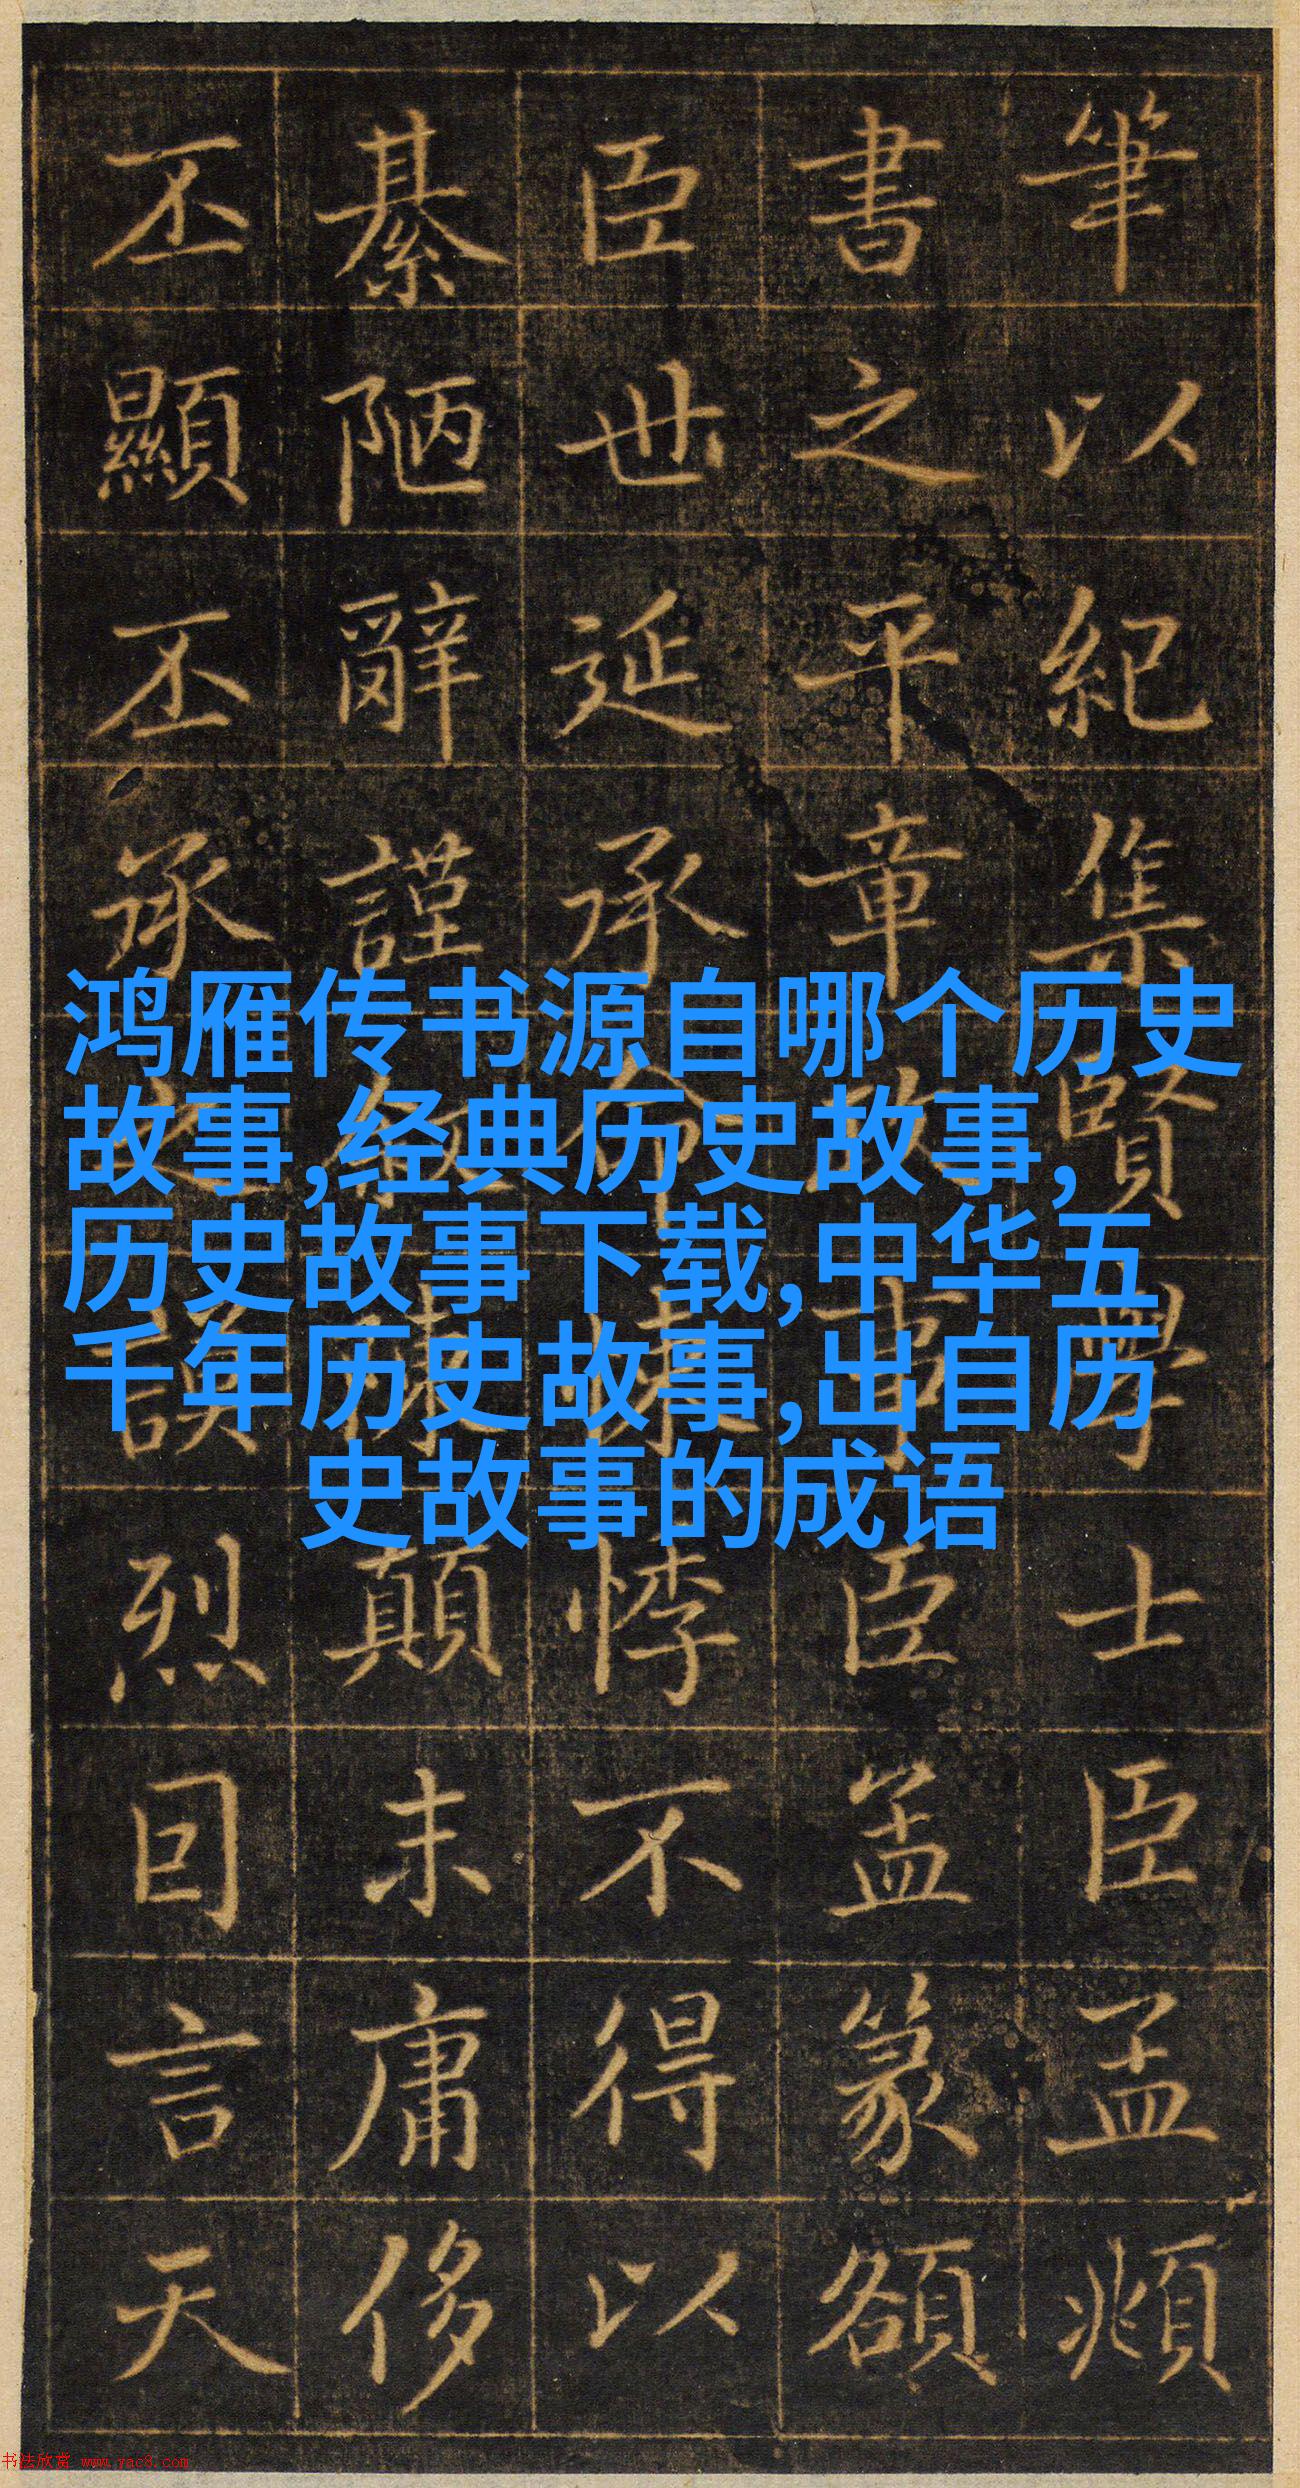 鸿雁传书源自哪个历史
故事,经典历史故事,
历史故事下载,中华五
千年历史故事,出自历
史故事的成语
筆以紀集賢學士臣孟頫
書之平章政事臣篆額
臣世延承命悚悸不得以
綦陋辭謹顛末庸侈
丕顯丕承之謨烈言天
书法欣赏 www.yac8.com